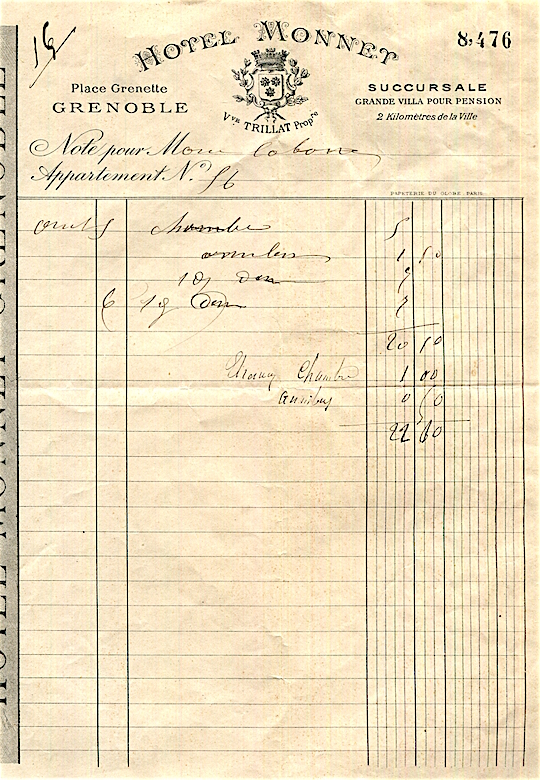 16
HOTEL MONNET
8,476
Place Grenette
GRENOBLE
Vve TRILLAT Propre
SUCCURSALE
GRANDE VILLA POUR PENSION
2 Kilomètres de la Ville
Note pour
Appartement N.º 56
PAPETERIE DU GLOBE. PARIS
août 5 chambre 5
omnibus 1 50
19 din 7
6 19 din 7
20 50
chambre 1 00
omnibus 0 50
22
HOTEL MONNET GRENOBLE